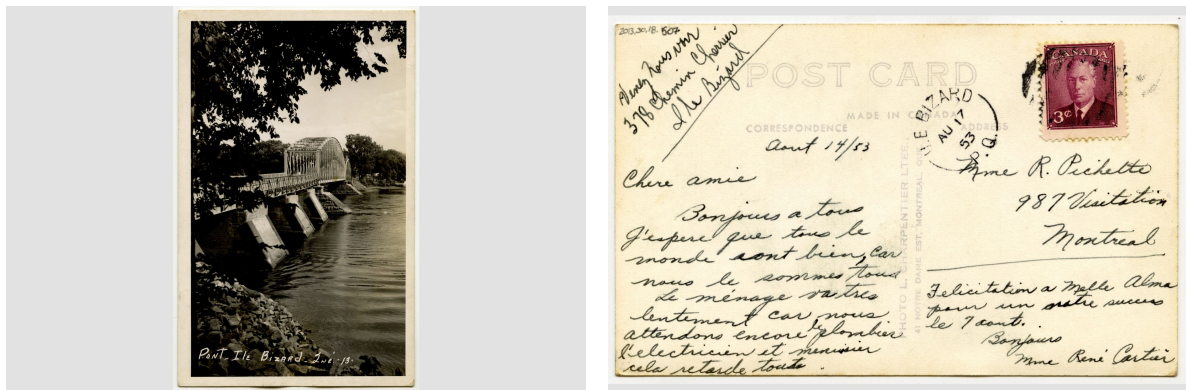 PONT-ILE BIZARD-QUE.-13-
2013.30.18.507
Venez nous voir
378 Chemin Cherrier
Ile Bizard
POST CARD
MADE IN CANADA
CORRESPONDENCE
ADDRESS
CANADA
3¢
ILE BIZARD
AU 17
53
P.Q.
Aout 14/53
Chere amie
Bonjours a tous
J'espere que tous le
monde sont bien, car
nous le sommes tous
Le ménage va tres
lentement car nous
attendons encore le plombier
l'electricien et menuisier
cela retarde toute.
PHOTO L. CHARPENTIER LTEE.
41 NOTRE DAME EST, MONTREAL, QUE.
Mme R. Pichette
987 Visitation
Montreal
Felicitation a Melle Alma
pour un autre succes
le 7 aout.
Bonjours
Mme René Cartier